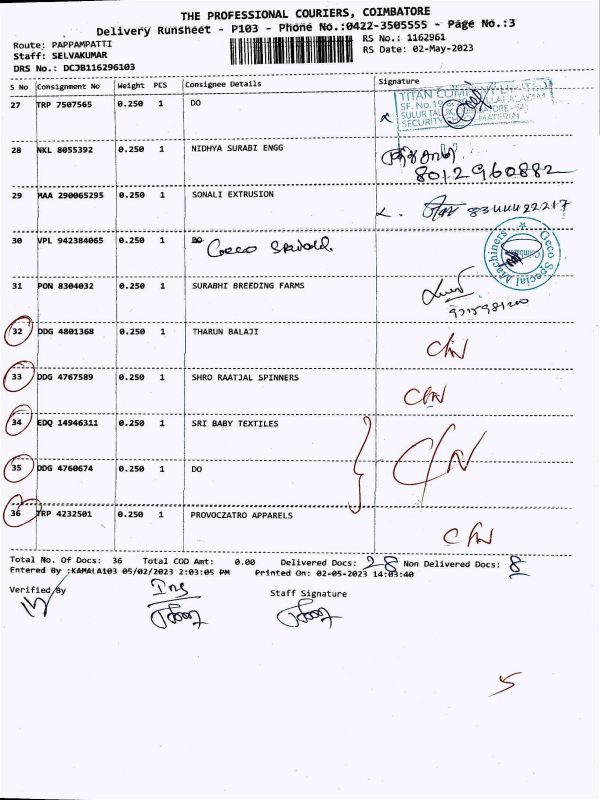 THE PROFESSIONAL COURIERS, COIMBATORE
Delivery Runsheet - P103 - Phone No.:0422-3505555 - Page No.:3
Route: PAPPAMPATTI
RS No.: 1162961
Staff: SELVAKUMAR
RS Date: 02-May-2023
DRS No.: DCJB116296103
S No Consignment No Weight PCS Consignee Details Signature
27 TRP 7507565 0.250 1 DO
TITAN COMPANY LIMITED
28 NKL 8055392 0.250 1 NIDHYA SURABI ENGG
8012960882
29 MAA 290065295 0.250 1 SONALI EXTRUSION
30 VPL 942384065 0.250 1 DO Geco
Geco Special Machiners
31 PON 8304032 0.250 1 SURABHI BREEDING FARMS
32 DDG 4801368 0.250 1 THARUN BALAJI
33 DDG 4767589 0.250 1 SHRO RAATJAL SPINNERS
34 EDQ 14946311 0.250 1 SRI BABY TEXTILES
C/N
35 DDG 4760674 0.250 1 DO
36 TRP 4232501 0.250 1 PROVOCZATRO APPARELS
Total No. Of Docs: 36 Total COD Amt: 0.00 Delivered Docs: 28 Non Delivered Docs: 8
Entered By :KAMALA103 05/02/2023 2:03:05 PM Printed On: 02-05-2023 14:03:40
Verified By
Staff Signature